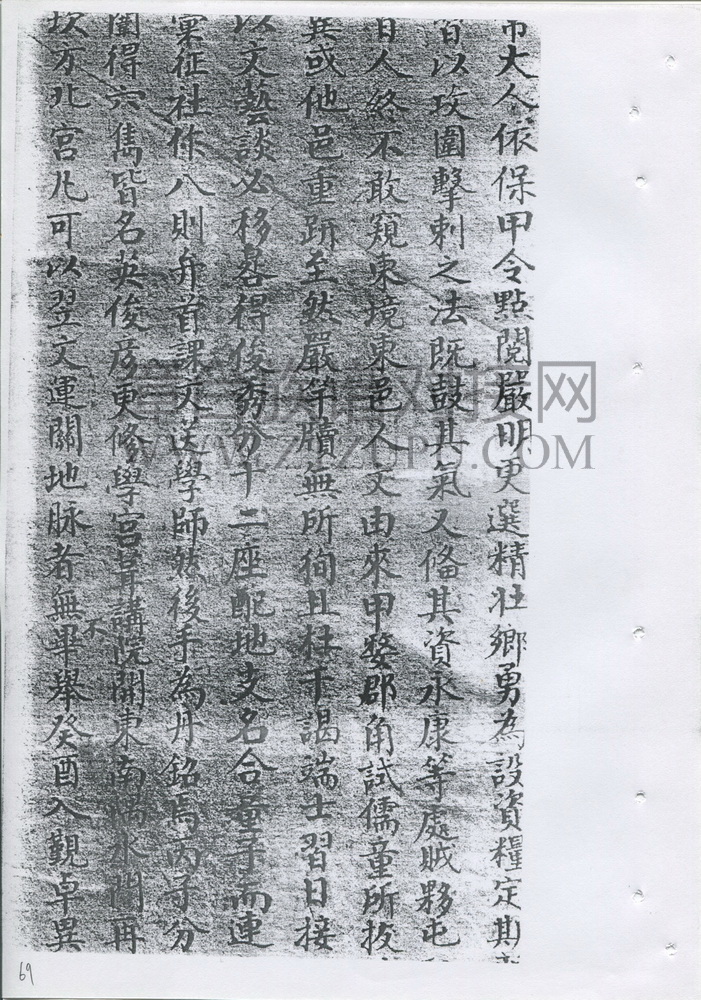 大人依保甲令點閱嚴明更選精壯鄉勇為設資糧定其
皆以攻圍擊刺之法既鼓其氣又俻其資永康等處賊夥屯
人終不敢窺東境東邑人文由來甲婺郡角試儒童所拔
異或他邑重趼至然嚴竿牘無所徇且杜干謁端士習日接
以文藝談必移晷得俊秀分十二座配地支名合童子而連
彙征社作八則弁首課文送學師然後手為丹銘焉丙子分
闈得六雋皆名英俊彥更修學宮葺講院開東南隅水門再
坎方九宮凡可以翌文運關地脉者無不畢舉癸酉入覲卓異
69
网
WWW.ZJZUPU.COM